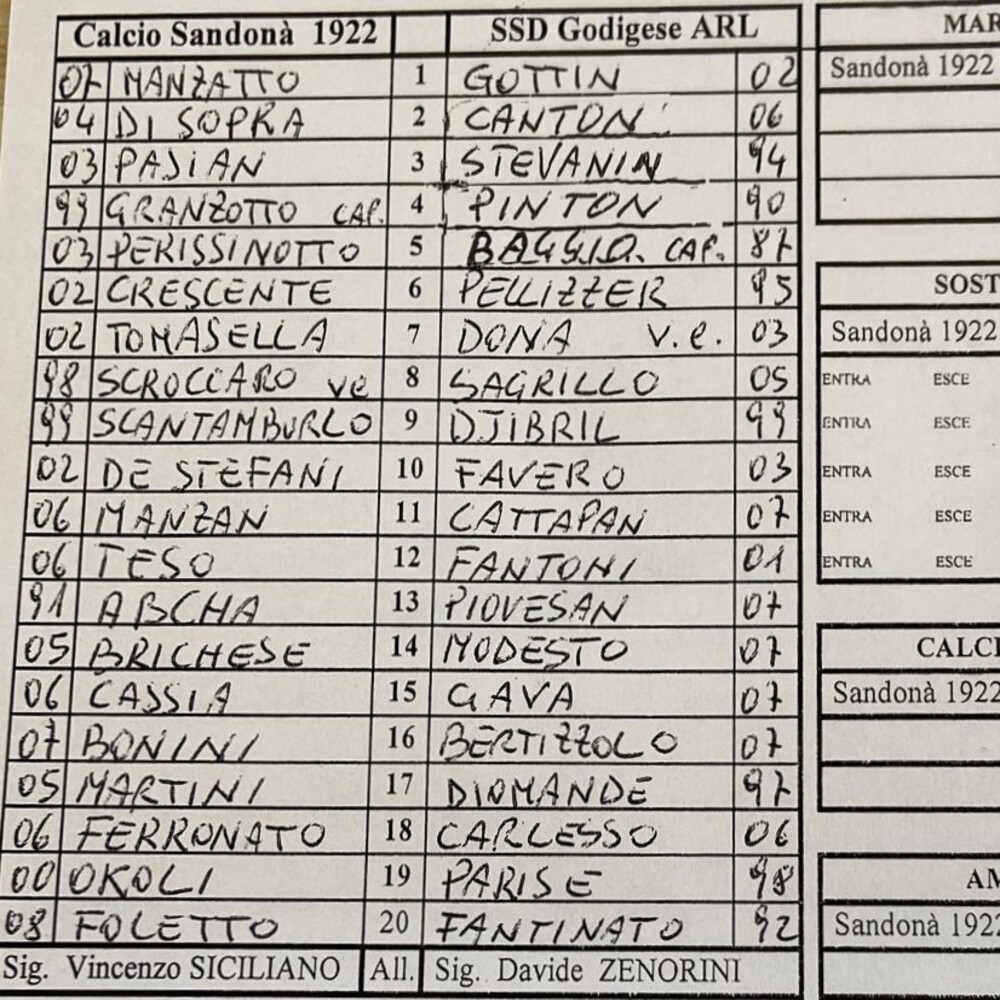 Calcio Sandonà 1922 SSD Godigese ARL MAR
07 MANZATTO 1 GOTTIN 02 Sandonà 1922
04 DI SOPRA 2 CANTON 06
03 PASIAN 3 STEVANIN 94
99 GRANZOTTO CAP. 4 PINTON 90
03 PERISSINOTTO 5 BAGGIO CAP. 87
02 CRESCENTE 6 PELLIZZER 95 SOST
02 TOMASELLA 7 DONA v.e. 03 Sandonà 1922
98 SCROCCARO ve 8 SAGRILLO 05 ENTRA ESCE
99 SCANTAMBURLO 9 DJIBRIL 99 ENTRA ESCE
02 DE STEFANI 10 FAVERO 03 ENTRA ESCE
06 MANZAN 11 CATTAPAN 07 ENTRA ESCE
06 TESO 12 FANTONI 01 ENTRA ESCE
91 ABCHA 13 PIOVESAN 07
05 BRICHESE 14 MODESTO 07 CALCI
06 CASSIA 15 GAVA 07 Sandonà 1922
07 BONINI 16 BERTIZZOLO 07
05 MARTINI 17 DIOMANDE 97
06 FERRONATO 18 CARLESSO 06
00 OKOLI 19 PARISE 98 AM
08 FOLETTO 20 FANTINATO 92 Sandonà 1922
Sig. Vincenzo SICILIANO All. Sig. Davide ZENORINI